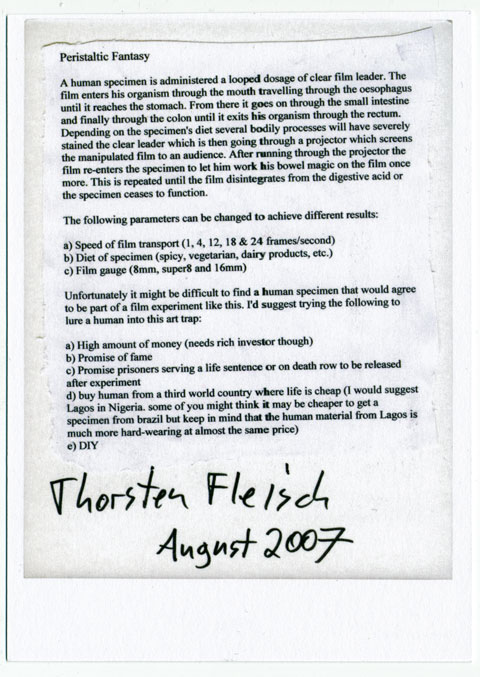 Peristaltic Fantasy
A human specimen is administered a looped dosage of clear film leader. The
film enters his organism through the mouth travelling through the oesophagus
until it reaches the stomach. From there it goes on through the small intestine
and finally through the colon until it exits his organism through the rectum.
Depending on the specimen's diet several bodily processes will have severely
stained the clear leader which is then going through a projector which screens
the manipulated film to an audience. After running through the projector the
film re-enters the specimen to let him work his bowel magic on the film once
more. This is repeated until the film disintegrates from the digestive acid or
the specimen ceases to function.
The following parameters can be changed to achieve different results:
a) Speed of film transport (1, 4, 12, 18 & 24 frames/second)
b) Diet of specimen (spicy, vegetarian, dairy products, etc.)
c) Film gauge (8mm, super8 and 16mm)
Unfortunately it might be difficult to find a human specimen that would agree
to be part of a film experiment like this. I'd suggest trying the following to
lure a human into this art trap:
a) High amount of money (needs rich investor though)
b) Promise of fame
c) Promise prisoners serving a life sentence or on death row to be released
after experiment
d) buy human from a third world country where life is cheap (I would suggest
Lagos in Nigeria. some of you might think it may be cheaper to get a
specimen from brazil but keep in mind that the human material from Lagos is
much more hard-wearing at almost the same price)
e) DIY
Thorsten Fleisch
August 2007